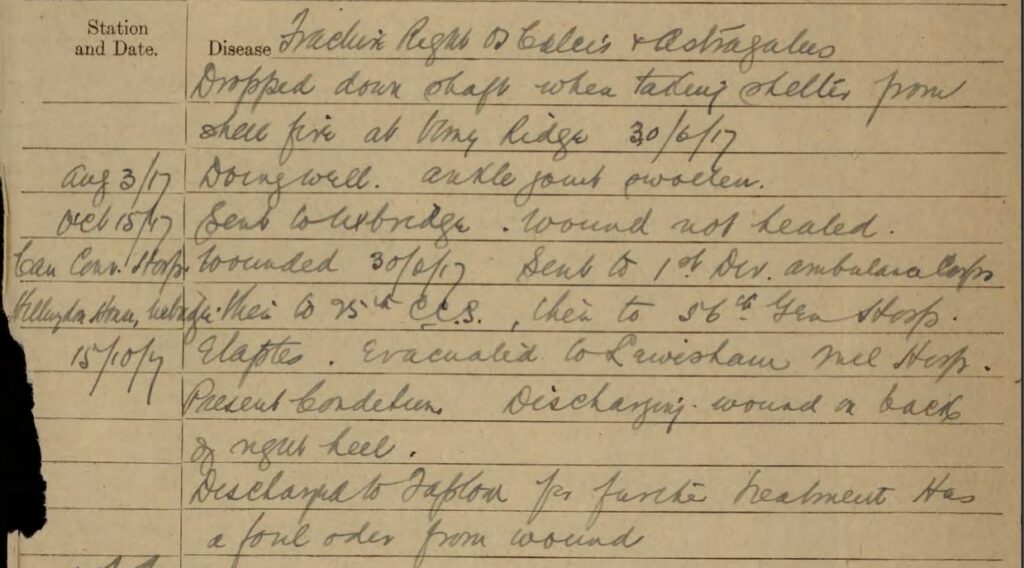 Station
and Date.
Disease Fractur Right Os Calcis + Astragalus
Dropped down shaft when taking shelter from
shell fire at Vimy Ridge 30/6/17
Aug 3/17 Doing well. ankle joint swollen.
Oct 15/17 Sent to Uxbridge. Wound not healed.
Can Conv. Hosp. Wounded 30/6/17 Sent to 1st Div. ambulance Corps
Hillingdon House, Uxbridge. then to C.C.S., then to 56th Gen Hosp.
15/10/7 Etaples. Evacuated to Lewisham Mil Hosp.
Present Condition Discharging wound on back
of right heel.
Discharged to Taplow for further treatment Has
a foul oder from wound